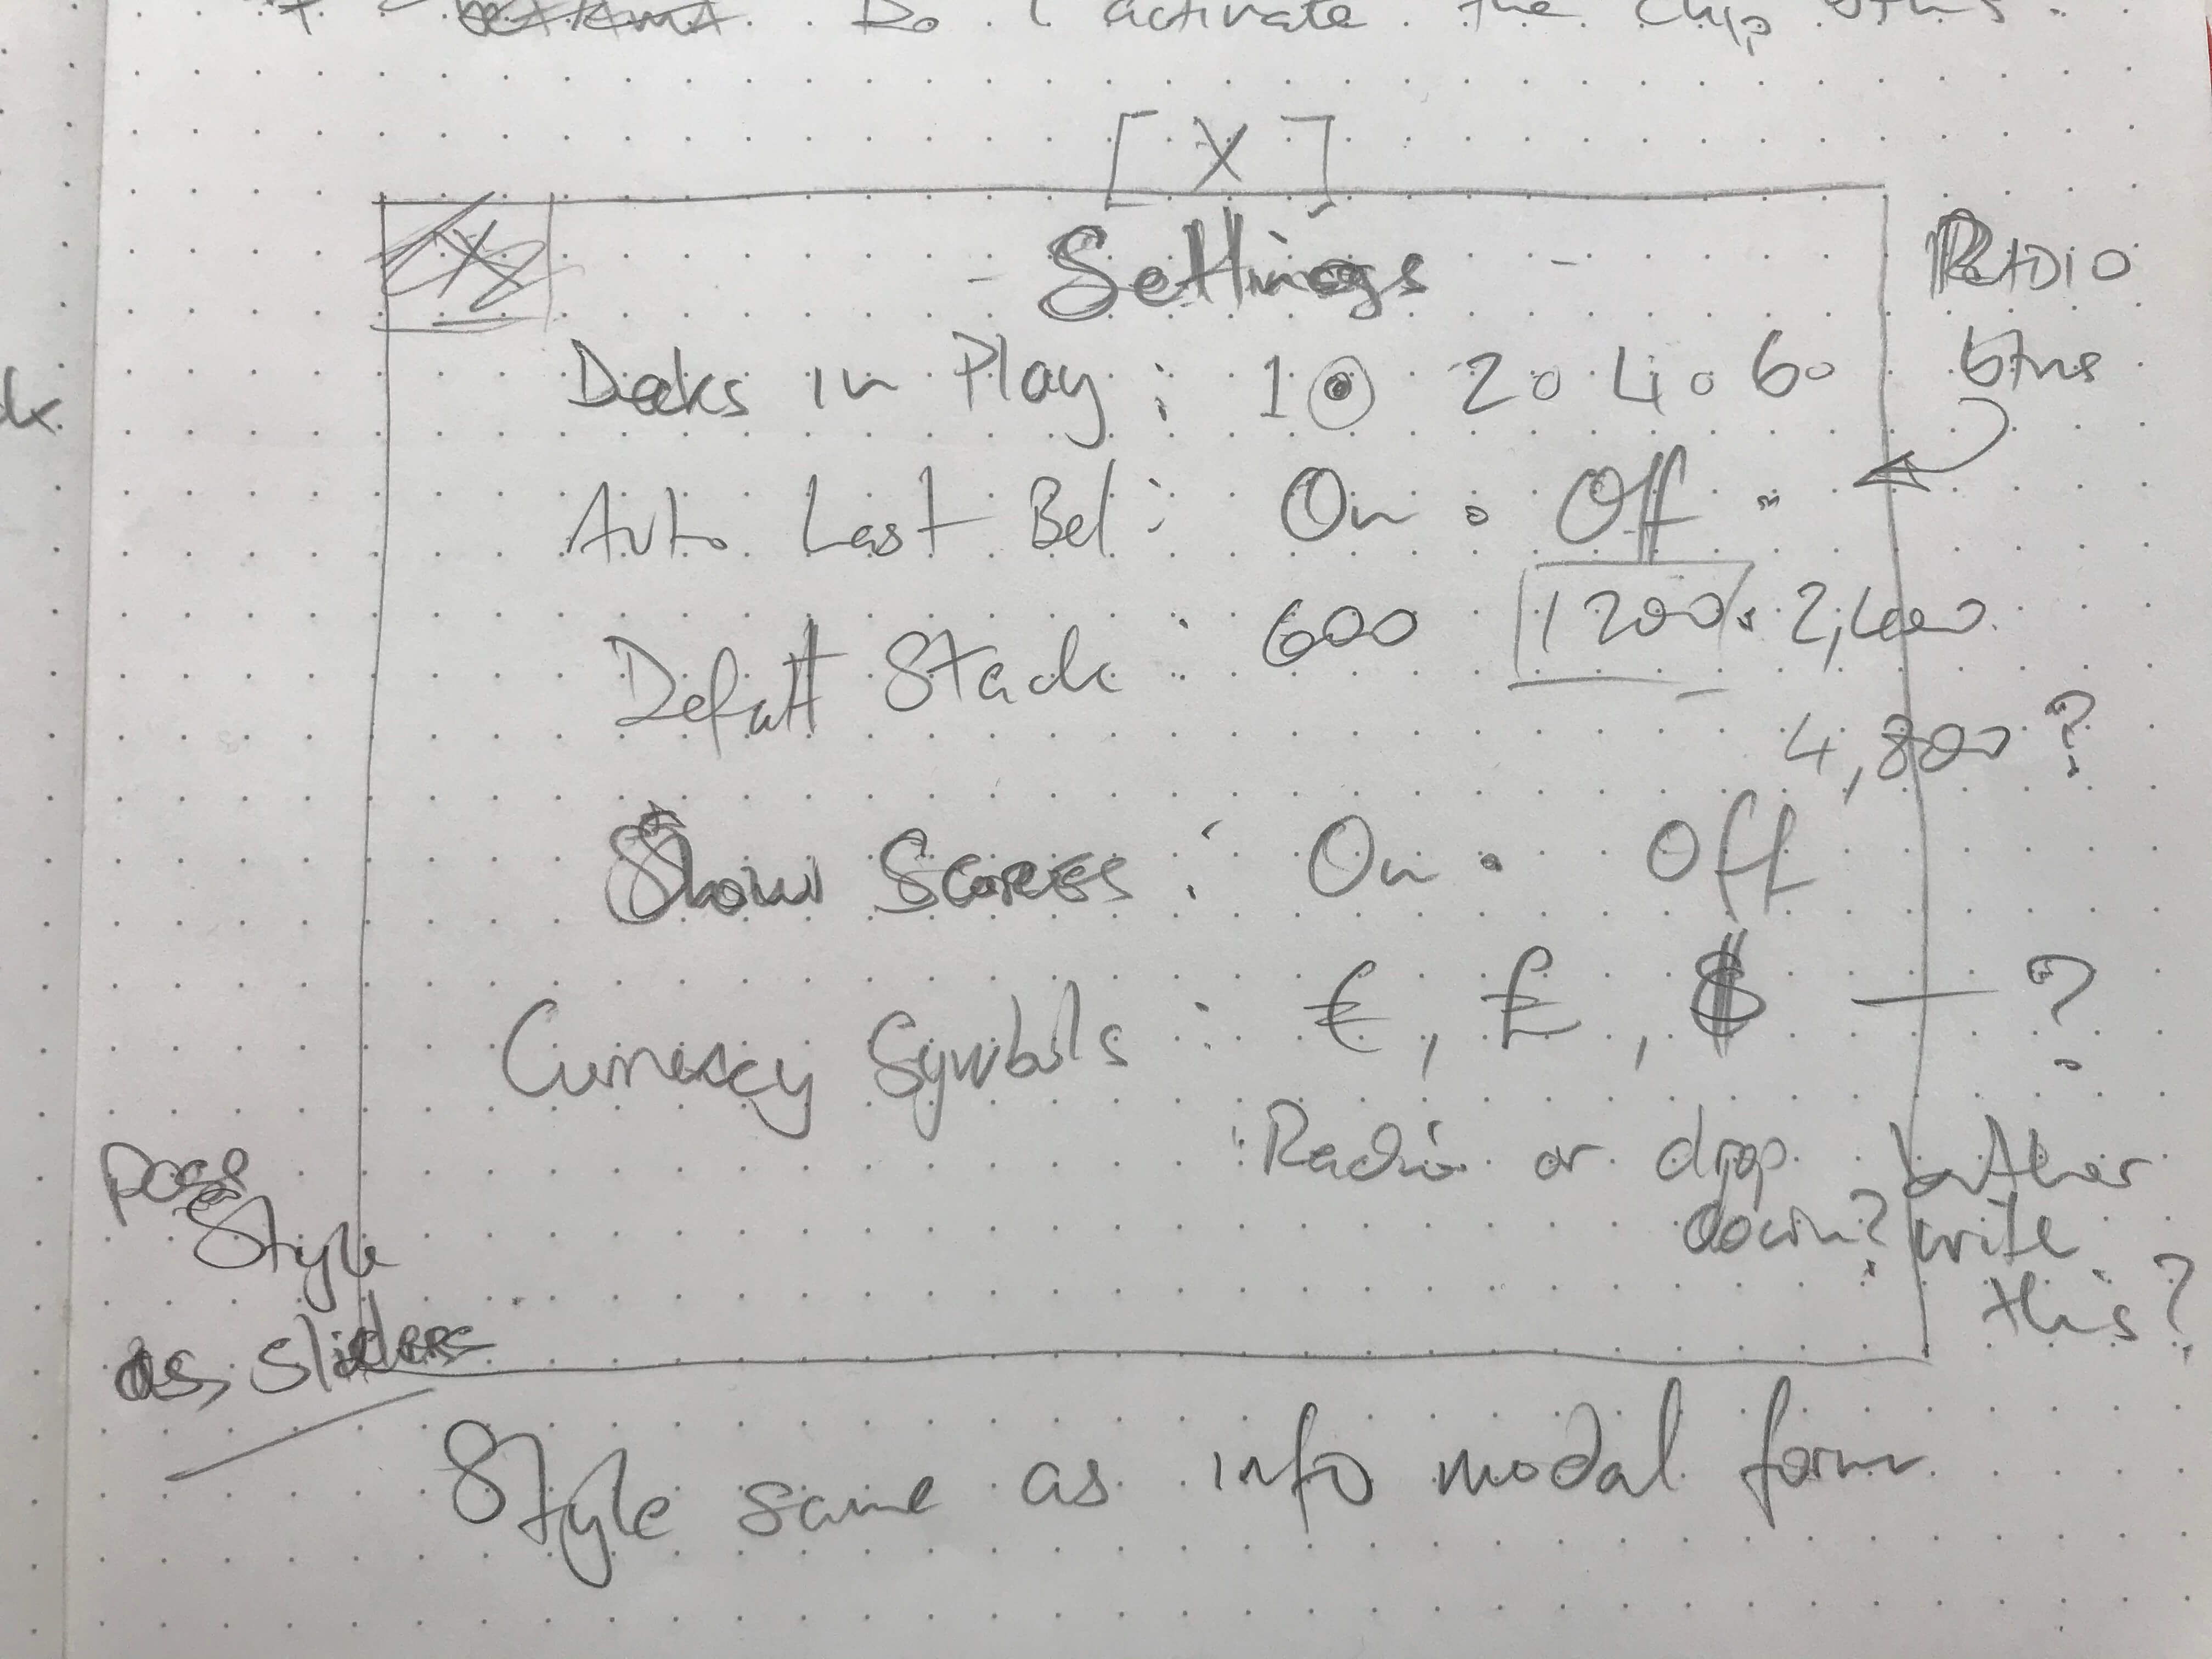 Do I activate the chip btns.
[ X ]
X
- Settings -
RADIO
btns
Decks in Play : 1 2 4 6
Auto Last Bet : On Off
Default Stack : 600 1200 2,400
4,800 ?
Show Scores : On Off
Currency Symbols : €, £, $ — ?
Radio or drop down?
bother write this?
poss Style
as, Sliders
Style same as info modal form